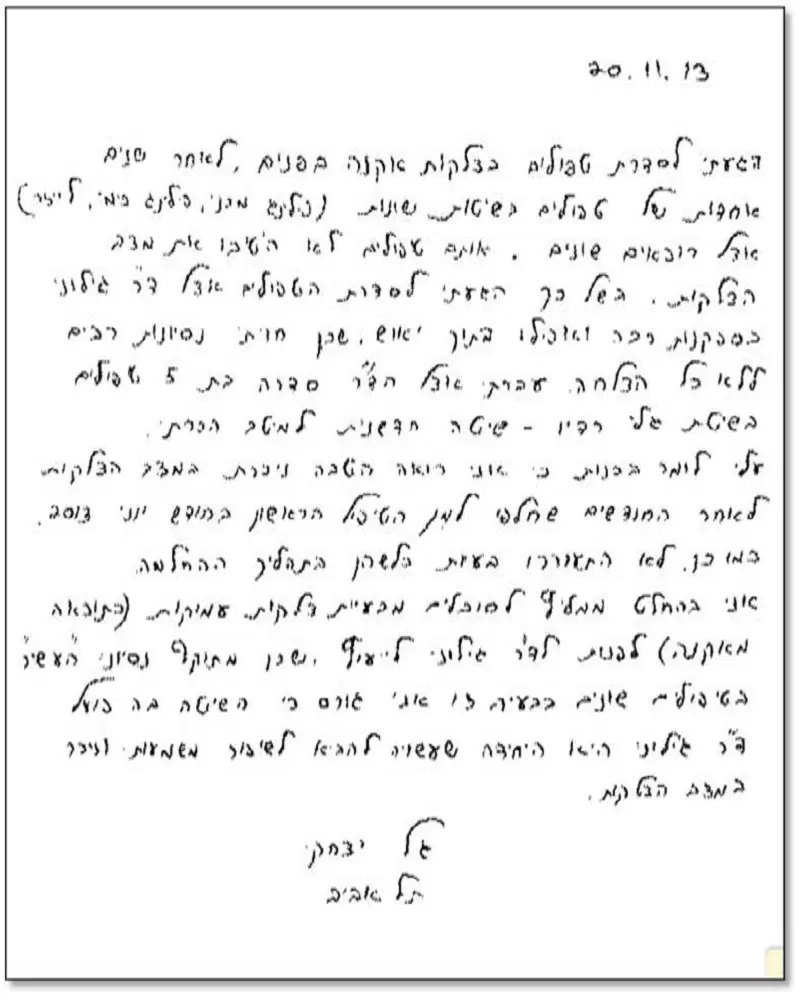 20.11.13
הגעתי לסדרת טפולים בצלקות אקנה בפנים, לאחר שנים
אחדות של טפולים בשיטות שונות (פילינג מכני, פילינג כימי, לייזר)
אצל רופאים שונים. אותם טפולים לא השיבו את מצב
הצלקות. בשל כך הגעתי לסדרת הטפולים אצל ד"ר גילוני
בסקפנות רבה ואפילו בתוך יאוש, שכן חויתי נסיונות רבים
ללא כל הצלחה. עברתי אצל הד"ר סדרה בת 5 טפולים
בשיטת גלי רדיו - שיטה חדשנית למיטב הכרתי.
עלי לומר בכנות כי אני רואה השבה ניכרת במצב הצלקות
לאחר החודשים שחלפו למן הטיפול הראשון בחודש יוני
כמו כן, לא התעוררו בעיות כלשהן בתהליך ההחלמה.
אני בהחלט ממליץ לסובלים מבעיית צלקות עמיקות (כתוצאה
מאקנה) לפנות לד"ר גילוני לייעוץ, שכן מתוקף נסיוני "העשיר"
בטיפולים שונים בבעיה זו אני גורס כי השיטה בה פועל
ד"ר גילוני היא היחידה שעשויה להביא לשיפור משמעותי וניכר
במצב הצלקות.
גל יצחקי
תל אביב